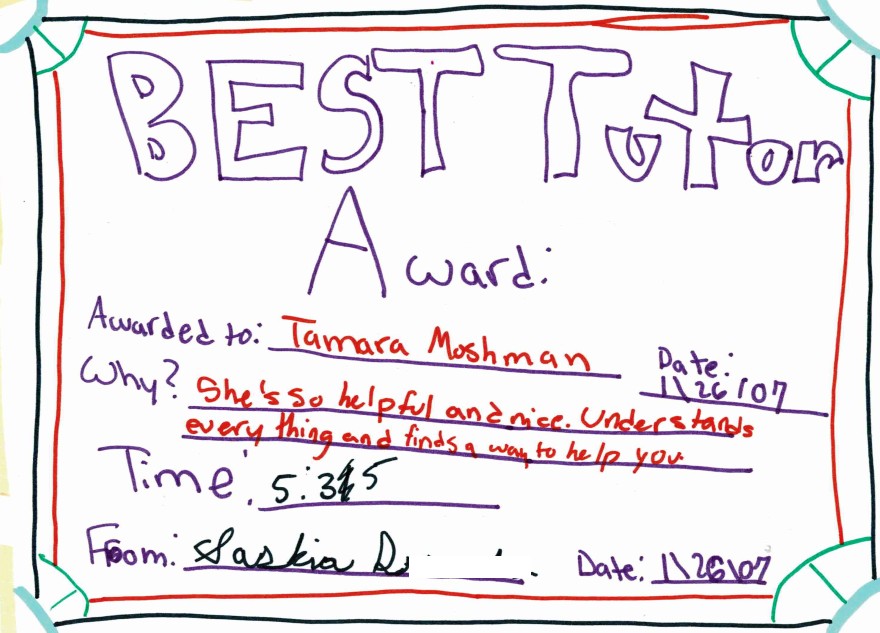 BEST Tutor
Award:
Awarded to: Tamara Moshman
Date:
11/26/07
Why? She's so helpful and nice. Understands
every thing and finds a way to help you
Time: 5:35
From: Saskia
Date: 11\26\07